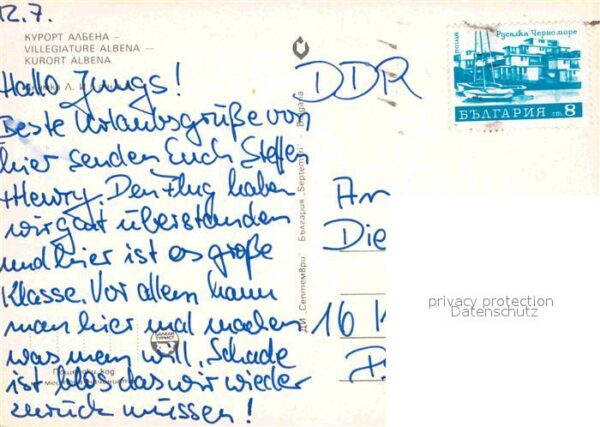 12.7.
КУРОРТ АЛБЕНА –
VILLEGIATURE ALBENA —
KURORT ALBENA
Hallo Jungs!
Beste Urlaubsgrüße von
hier senden Euch Steffen
+ Henry. Den Flug haben
wir gut überstanden
und hier ist es große
Klasse. Vor allem kann
man hier mal machen
was man will. Schade
ist blos das wir wieder
zurück müssen!
ДИ „Септември" България „Septemvri" Bulgaria
DDR
роща Русалка Черноморе
БЪЛГАРИЯ ст. 8
An
Die
16
privacy protection
Datenschutz
БАЛКАН
ТУРИСТ
Пощенски код